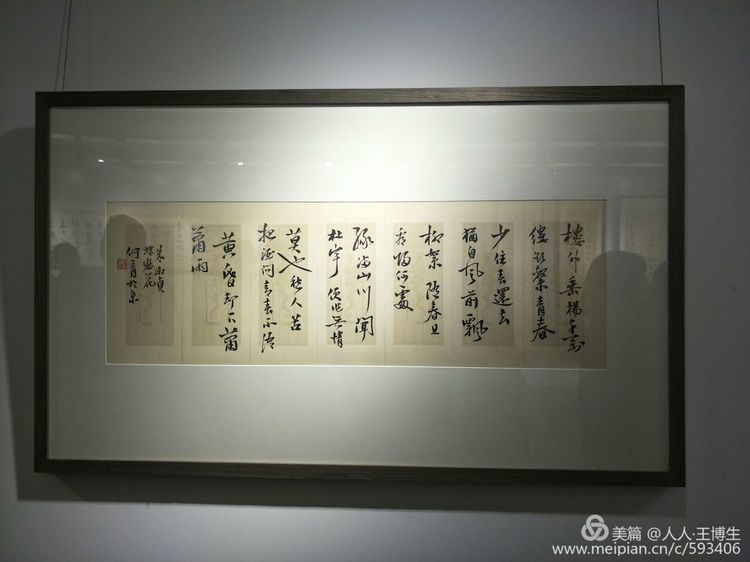 樓外垂楊千萬
縷欲繫青春
少住春還去
猶自風前飄
柳絮隨春且
看歸何處
綠滿山川聞
杜宇便作無情
莫也愁人苦
把酒問春春不語
黃昏卻下蕭
蕭雨
朱淑貞
蝶戀花
何青於京
美篇 @人人·王博生
www.meipian.cn/c/593406